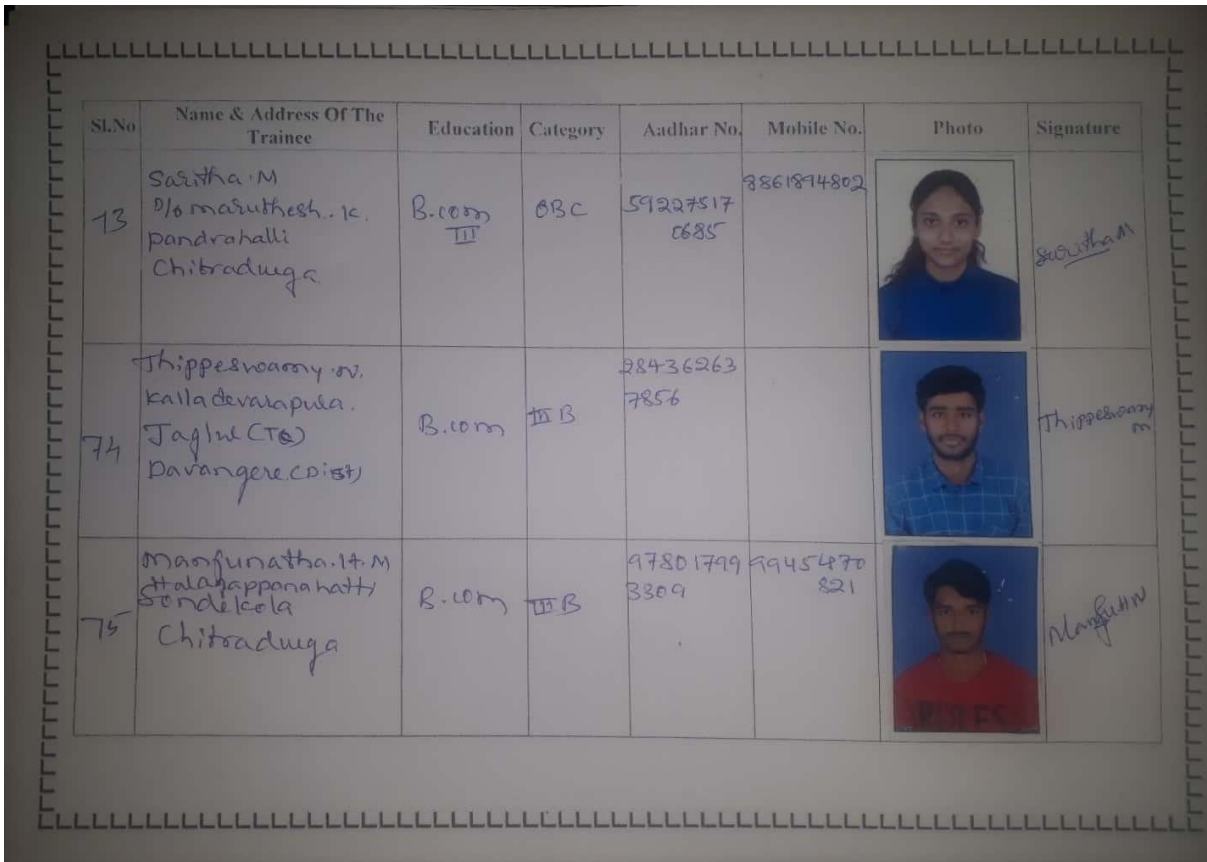 Sl.No Name & Address Of The Trainee Education Category Aadhar No. Mobile No. Photo Signature
73
Saritha.M
D/o maruthesh.K.
Pandrahalli
Chitradurga
B.com
III
OBC
59227517
0685
8861894802
Saritha M
74
Thippeswamy.N.
Kalladevarapura.
(TQ)
Davangere (Dist)
B.com
III B
28436263
7856
Thippeswamy
75
Manjunatha.H.M
Chitradurga
B.com
III B
97801799
3309
99454870
821
RULES